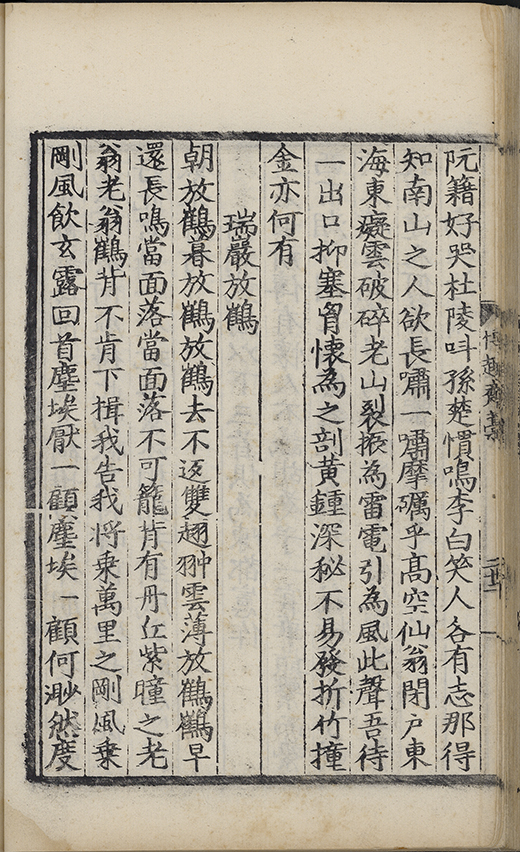 阮籍好哭杜陵呌孫楚慣鳴李白笑人各有志那得
知南山之人欲長嘯一嘯摩礪乎髙空仙翁閉戸東
海東癡雲破碎老山裂振為雷電引為風此聲吾待
一出口抑塞胷懷為之剖黄鍾深秘不易發折竹撞
金亦何有
瑞巖放鶴
朝放鶴暮放鶴放鶴去不返雙翅翀雲薄放鶴鶴早
還長鳴當面落當面落不可籠背有丹丘紫曈之老
翁老翁鶴背不肯下揖我告我将乗萬里之剛風乗
剛風飲玄露回首塵埃厭一顧塵埃一顧何渺然度